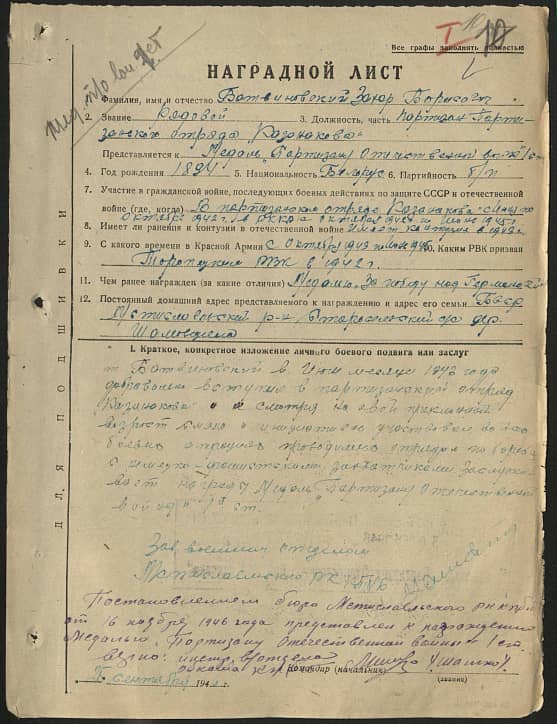 I 12
Все графы заполнять полностью
НАГРАДНОЙ ЛИСТ
1. Фамилия, имя и отчество Батвиновский Захар Борисович
2. Звание Рядовой 3. Должность, часть Партизан Парти-
занского отряда "Казанкова"
Представляется к Медаль "Партизану Отечественной войны" I ст.
4. Год рождения 1894 г. 5. Национальность Белорус 6. Партийность б/п
7. Участие в гражданской войне, последующих боевых действиях по защите СССР и отечественной
войне (где, когда) В партизанском отряде Казанкова с
октябрь 1942 г. в РККА с октября 1943
8. Имеет ли ранения и контузии в отечественной войне Имеет контузию в 1942 г.
9. С какого времени в Красной Армии с Октября 1943 10. Каким РВК призван
Торопецким РВК в 1942 г.
11. Чем ранее награжден (за какие отличия) Медалью "За победу над Германией"
12. Постоянный домашний адрес представляемого к награждению и адрес его семьи БССР
Мстиславский р-н с/с дер.
Шамовщина
I. Краткое, конкретное изложение личного боевого подвига или заслуг
т. Батвиновский в месяце 1942 года
добровольно вступил в партизанский отряд
Казанкова не смотря на свой преклонный
возраст смело и инициативно участвовал во всех
боевых операциях проводимых отрядом по борьбе
с немецко-фашистскими захватчиками. Заслужи-
вает награду Медаль "Партизану Отечественной
войны" I ст.
Зав. военным отделом
Мстиславльского РК КП(б)Б
Постановлением бюро Мстиславльского РК КП(б)Б
от 16 ноября 1946 года представлен к награждению
Медалью "Партизану отечественной войны" I ст.
Верно:
Командир (начальник)
сентября 194 г. (звание)
ДЛЯ ПОДШИВКИ